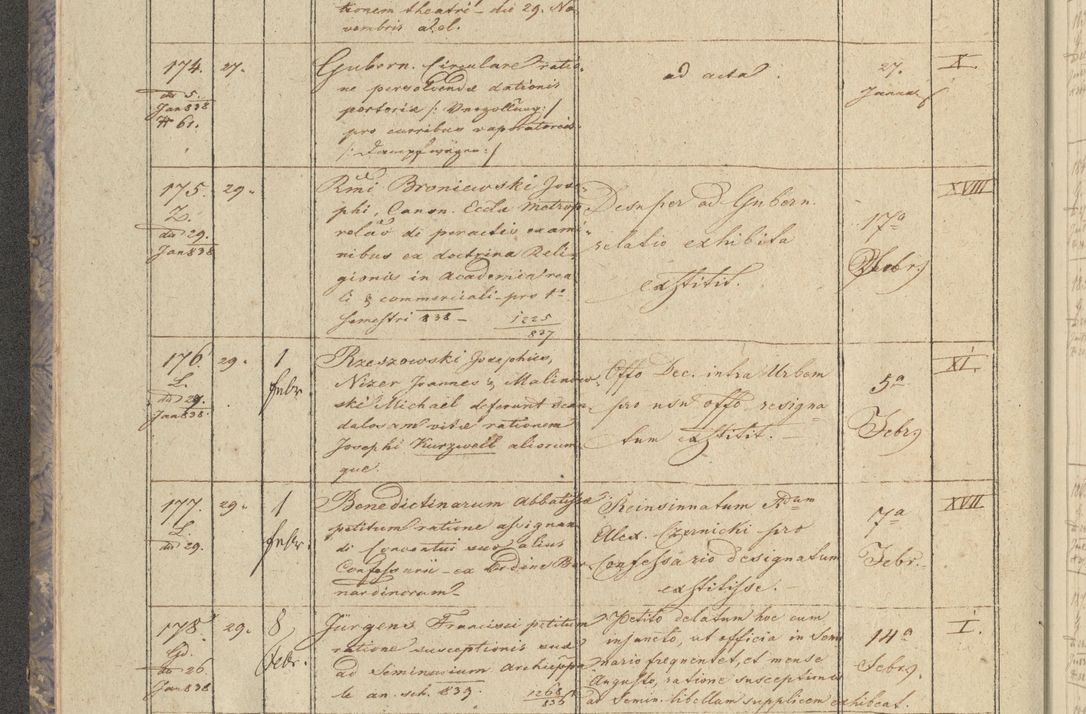 tionem theatri - die 29. No-
vembris a. el.
174. 27.
dto 5.
Jan 838
# 61.
Gubern. Circulare ratio-
ne persolvendæ dationis
portoriæ /: Verzollung :/
pro curribus vaporatoriis
/: Dampfwägen :/
ad acta.
27.
Januar
X.
175. 29.
Z.
dto 29.
Jan 838
Rmi Broniewski Jose-
phi, Canon. Eccla Metrop.
relao de peractis exami-
nibus ex doctrina Reli-
gionis in Academica rea-
li & commerciali - pro 1o
Semestri 838 - 1225/837
Desuper ad Gubern.
relatio exhibita
exstitit.
17a
Febr.
XVIII
176. 29. 1
L.
dto 29.
Jan 838.
Febr.
Rzeszowski Josephus,
Nizer Joannes & Malinow-
ski Michaël deferunt scan-
dalosam vitæ rationem
Josephi Kurzweil aliorum-
que.
Offo Dec. intra Urbem
pro usu offo. resigna-
tum exstitit. -
5a
Febr.
XI.
177. 29. 1
L.
dto 29.
Febr.
Benedictinarum Abbatissæ
petitum ratione assignan-
di Conventui suo alius
Confessarii - ex Ordine Ber-
nardinorum -
Reinsinnatum Rdum
Alex. Czernichi pro
Confessario designatum
exstitisse. -
7a
Febr.
XVII
178. 29. 8
dto 26
Jan 838
Febr.
Jürgens Francisci petitum
ratione susceptionis sui
ad Seminarium Archieppa-
le an. sch. 839. 1268/836
Petito delatum hoc cum
injuncto, ut officia in Semi-
nario frequentet, et mense
Augusto, ratione susceptionis
ad Semin. libellum supplicem exhibeat.
14a
Febr.
I.